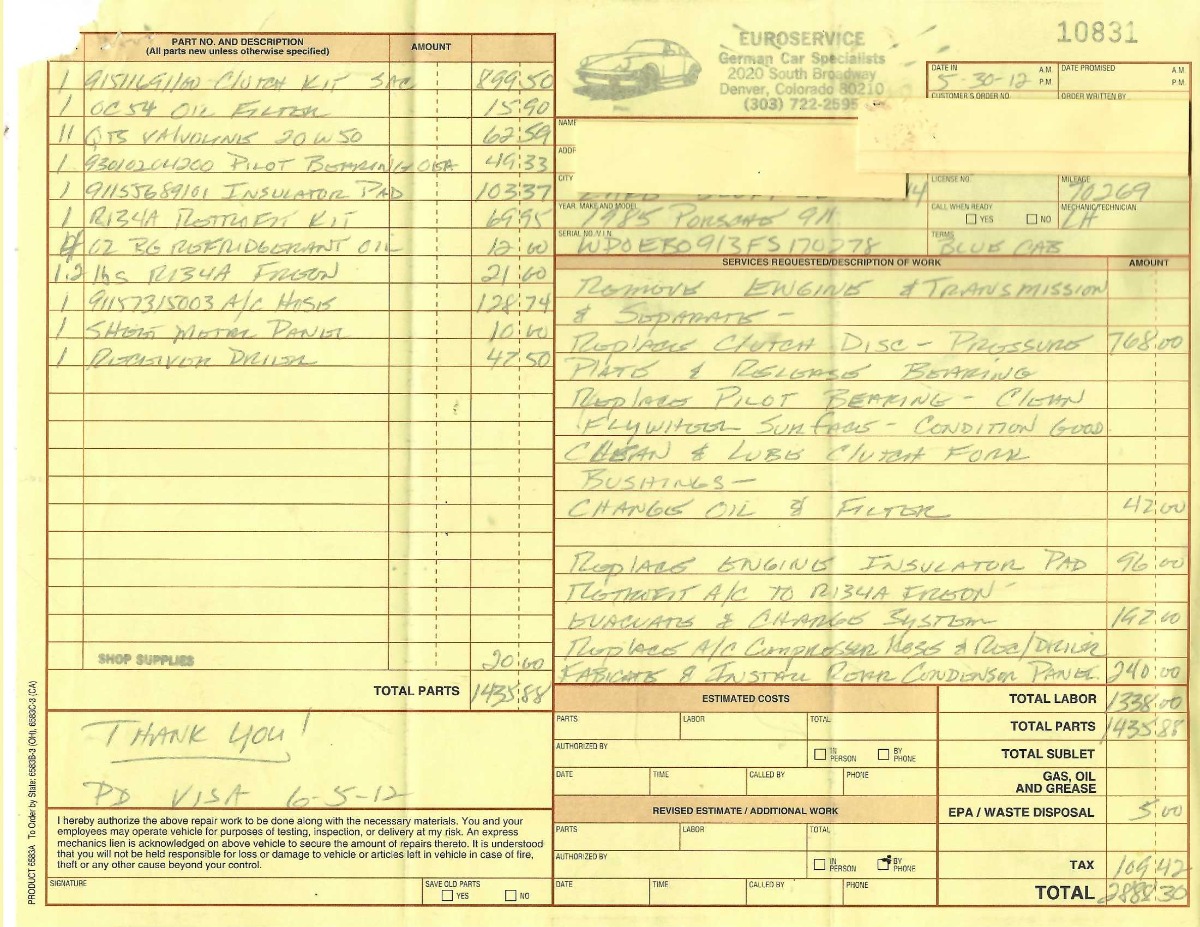 PART NO. AND DESCRIPTION
(All parts new unless otherwise specified)
AMOUNT
1 91511691100 CLUTCH KIT SAC 899.50
1 OC54 OIL FILTER 15.90
11 QTS VALVOLINE 20W50 62.59
1 93010204200 PILOT BEARING 49.33
1 91155689101 INSULATOR PAD 103.37
1 R134A RETROFIT KIT 69.95
4 OZ BG REFRIDGERANT OIL 12.00
1.2 lbs R134A FREON 21.60
1 91157315003 A/C HOSE 128.74
1 SHEET METAL PANEL 10.00
1 RECEIVER DRIER 42.50
SHOP SUPPLIES 20.00
TOTAL PARTS 1435.88
THANK YOU!
PD VISA 6-5-12
I hereby authorize the above repair work to be done along with the necessary materials. You and your
employees may operate vehicle for purposes of testing, inspection, or delivery at my risk. An express
mechanics lien is acknowledged on above vehicle to secure the amount of repairs thereto. It is understood
that you will not be held responsible for loss or damage to vehicle or articles left in vehicle in case of fire,
theft or any other cause beyond your control.
SIGNATURE
SAVE OLD PARTS
YES NO
PRODUCT 6583A To Order by State: 6583B-3 (OH), 6583C-3 (CA)
EUROSERVICE
German Car Specialists
2020 South Broadway
Denver, Colorado 80210
(303) 722-2595
10831
DATE IN 5-30-12 A.M. P.M.
DATE PROMISED A.M. P.M.
CUSTOMER'S ORDER NO.
ORDER WRITTEN BY
NAME
ADDR
CITY
LICENSE NO.
MILEAGE 70269
YEAR, MAKE AND MODEL 1985 PORSCHE 911
CALL WHEN READY YES NO
MECHANIC/TECHNICIAN LH
SERIAL NO./V.I.N. WDOEBO913FS170278
TERMS BLUE CAB
SERVICES REQUESTED/DESCRIPTION OF WORK
AMOUNT
REMOVE ENGINE & TRANSMISSION
& SEPARATE -
REPLACE CLUTCH DISC - PRESSURE 768.00
PLATE & RELEASE BEARING
REPLACE PILOT BEARING - CLEAN
FLYWHEEL SURFACE - CONDITION GOOD
CLEAN & LUBE CLUTCH FORK
BUSHINGS -
CHANGE OIL & FILTER 42.00
REPLACE ENGINE INSULATOR PAD 96.00
RETROFIT A/C TO R134A FREON -
EVACUATE & CHARGE SYSTEM 192.00
REPLACE A/C COMPRESSOR HOSE & REC/DRIER
FABRICATE & INSTALL REAR CONDENSOR PANEL. 240.00
ESTIMATED COSTS
PARTS LABOR TOTAL
AUTHORIZED BY
IN PERSON BY PHONE
DATE TIME CALLED BY PHONE
REVISED ESTIMATE / ADDITIONAL WORK
PARTS LABOR TOTAL
AUTHORIZED BY
IN PERSON BY PHONE
DATE TIME CALLED BY PHONE
TOTAL LABOR 1338.00
TOTAL PARTS 1435.88
TOTAL SUBLET
GAS, OIL
AND GREASE
EPA / WASTE DISPOSAL 5.00
TAX 109.42
TOTAL 2888.30